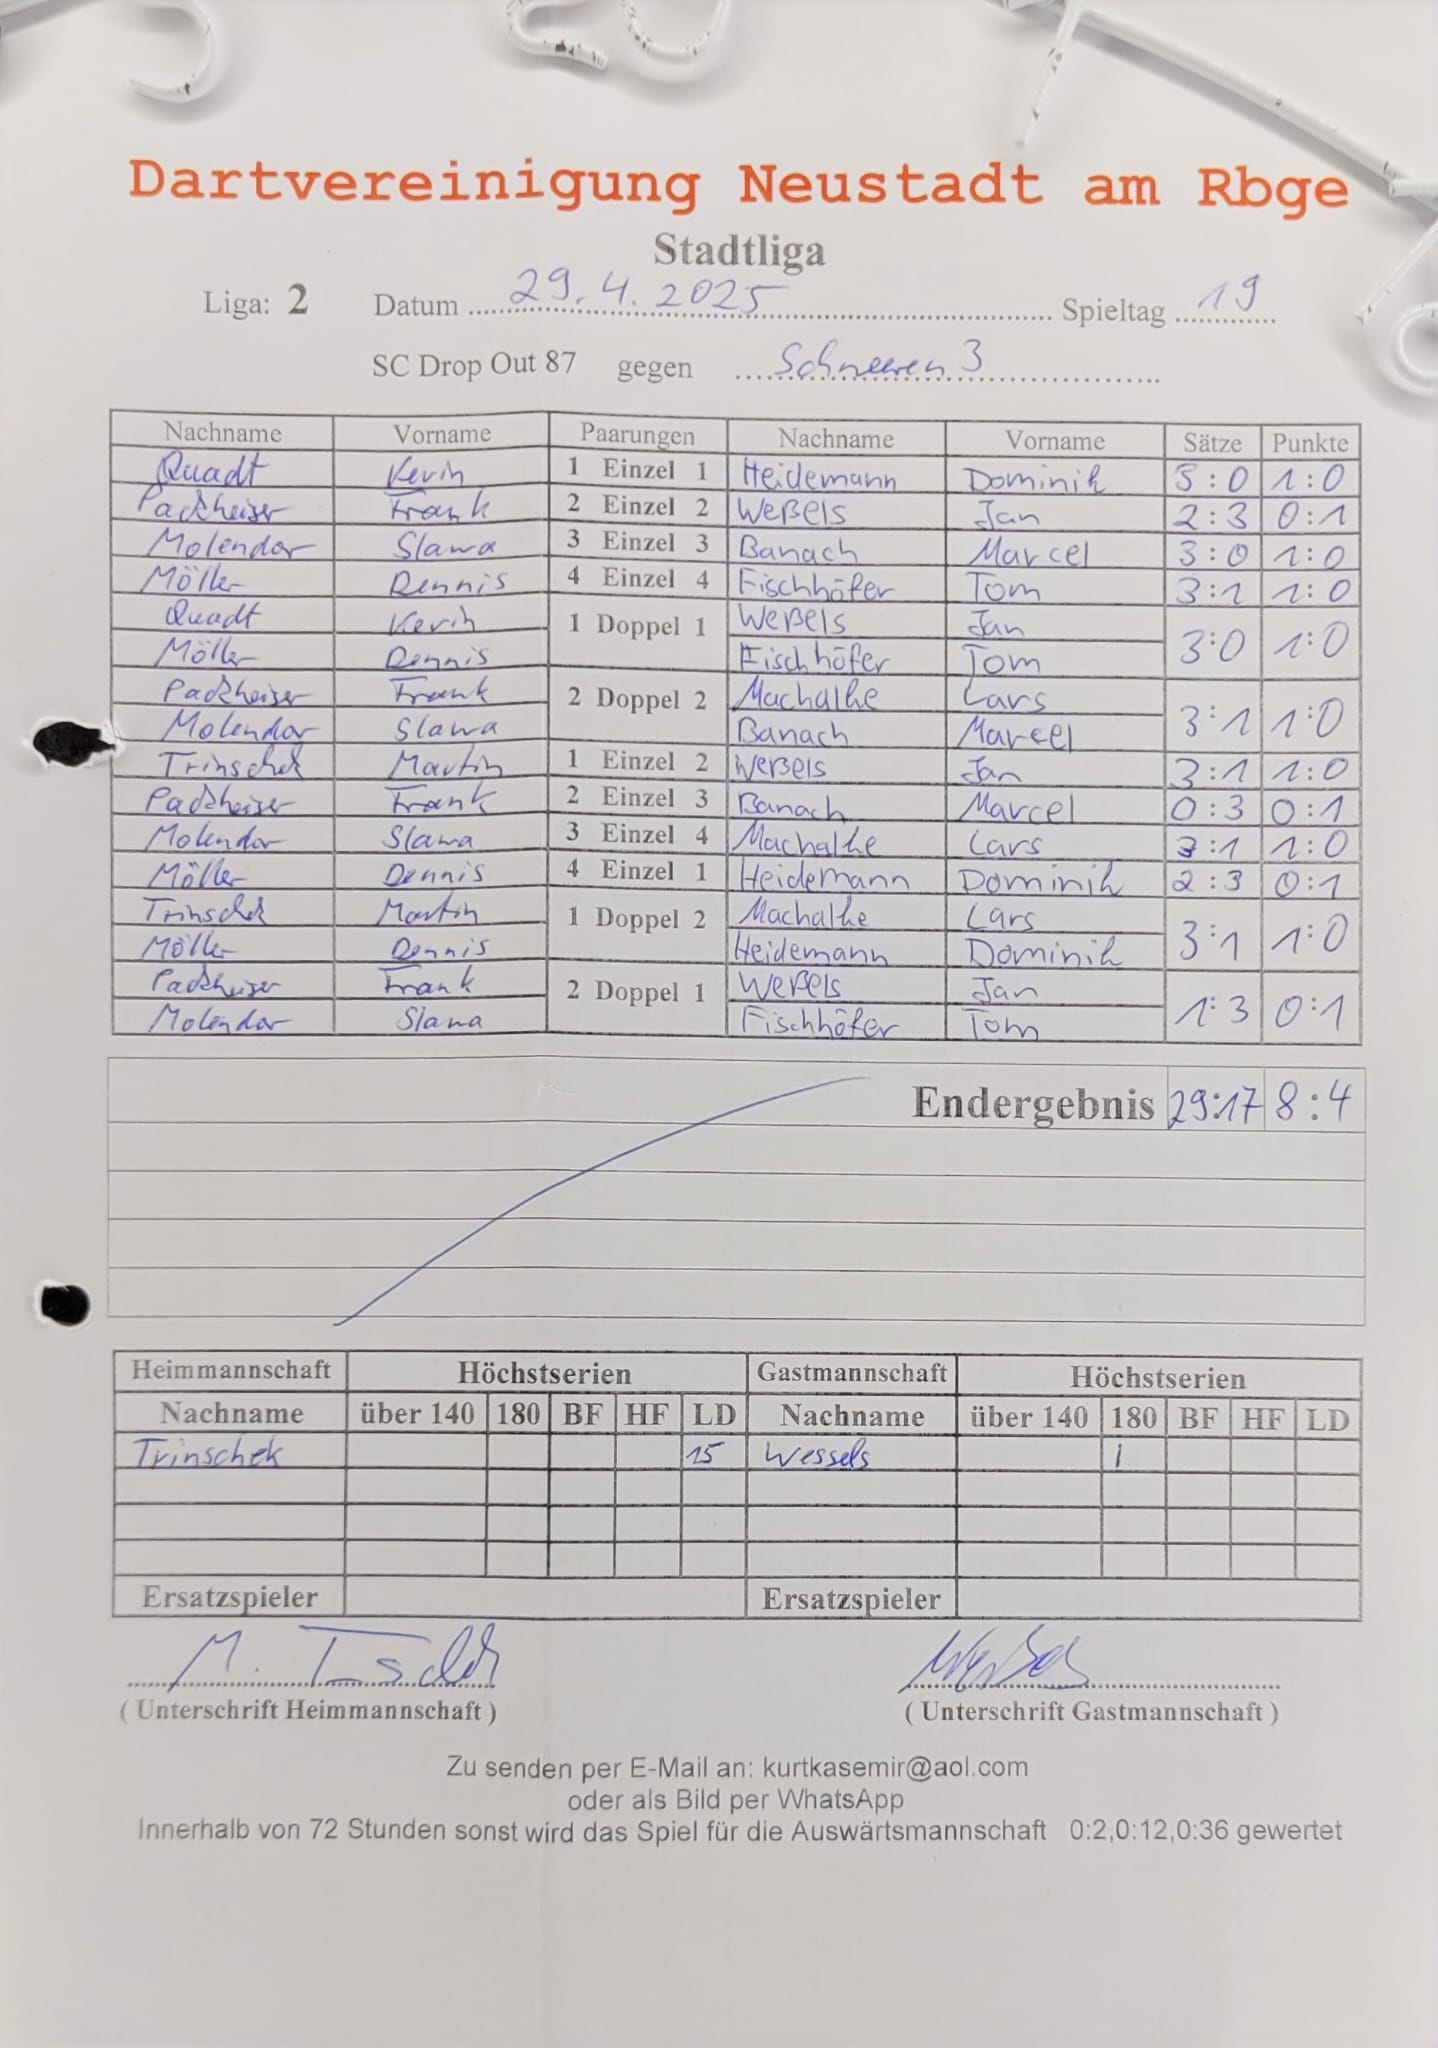 Dartvereinigung Neustadt am Rbge
Stadtliga
Liga: 2 Datum 29.4.2025 Spieltag 19
SC Drop Out 87 gegen Schneeren 3
Nachname Vorname Paarungen Nachname Vorname Sätze Punkte
Quadt Kevin 1 Einzel 1 Heidemann Dominik 3:0 1:0
Packheiser Frank 2 Einzel 2 Weßels Jan 2:3 0:1
Molendor Slawa 3 Einzel 3 Banach Marcel 3:0 1:0
Möller Dennis 4 Einzel 4 Fischhöfer Tom 3:1 1:0
Quadt Kevin 1 Doppel 1 Weßels Jan 3:0 1:0
Möller Dennis Fischhöfer Tom
Packheiser Frank 2 Doppel 2 Machalke Lars 3:1 1:0
Molendor Slawa Banach Marcel
Trinschek Martin 1 Einzel 2 Weßels Jan 3:1 1:0
Packheiser Frank 2 Einzel 3 Banach Marcel 0:3 0:1
Molendor Slawa 3 Einzel 4 Machalke Lars 3:1 1:0
Möller Dennis 4 Einzel 1 Heidemann Dominik 2:3 0:1
Trinschek Martin 1 Doppel 2 Machalke Lars 3:1 1:0
Möller Dennis Heidemann Dominik
Packheiser Frank 2 Doppel 1 Weßels Jan 1:3 0:1
Molendor Slawa Fischhöfer Tom
Endergebnis 29:17 8:4
Heimmannschaft Höchstserien Gastmannschaft Höchstserien
Nachname über 140 180 BF HF LD Nachname über 140 180 BF HF LD
Trinschek 15 Wessels 1
Ersatzspieler Ersatzspieler
(Unterschrift Heimmannschaft) (Unterschrift Gastmannschaft)
Zu senden per E-Mail an: kurtkasemir@aol.com
oder als Bild per WhatsApp
Innerhalb von 72 Stunden sonst wird das Spiel für die Auswärtsmannschaft 0:2,0:12,0:36 gewertet